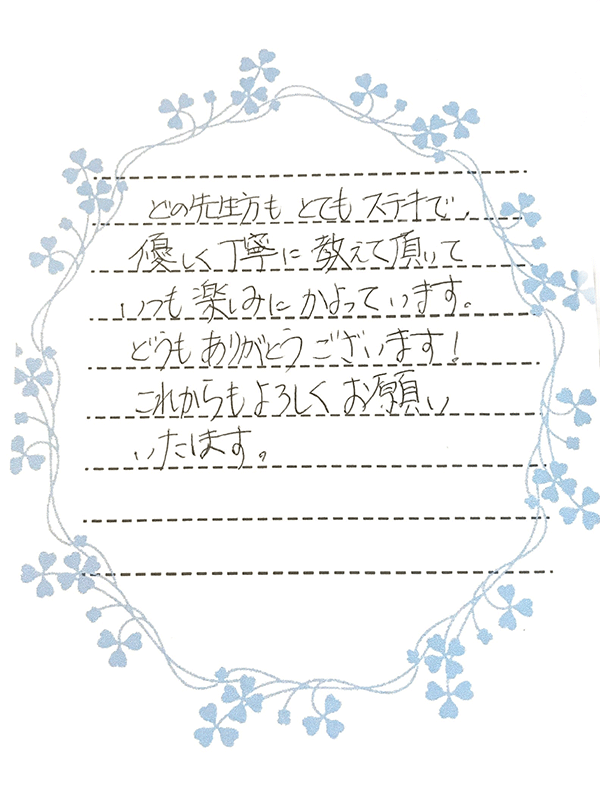 どの先生方も とても ステキで、
優しく 丁寧に 教えて頂いて
いつも 楽しみに かよっています。
どうも ありがとう ございます!
これからも よろしく お願い
いたます。